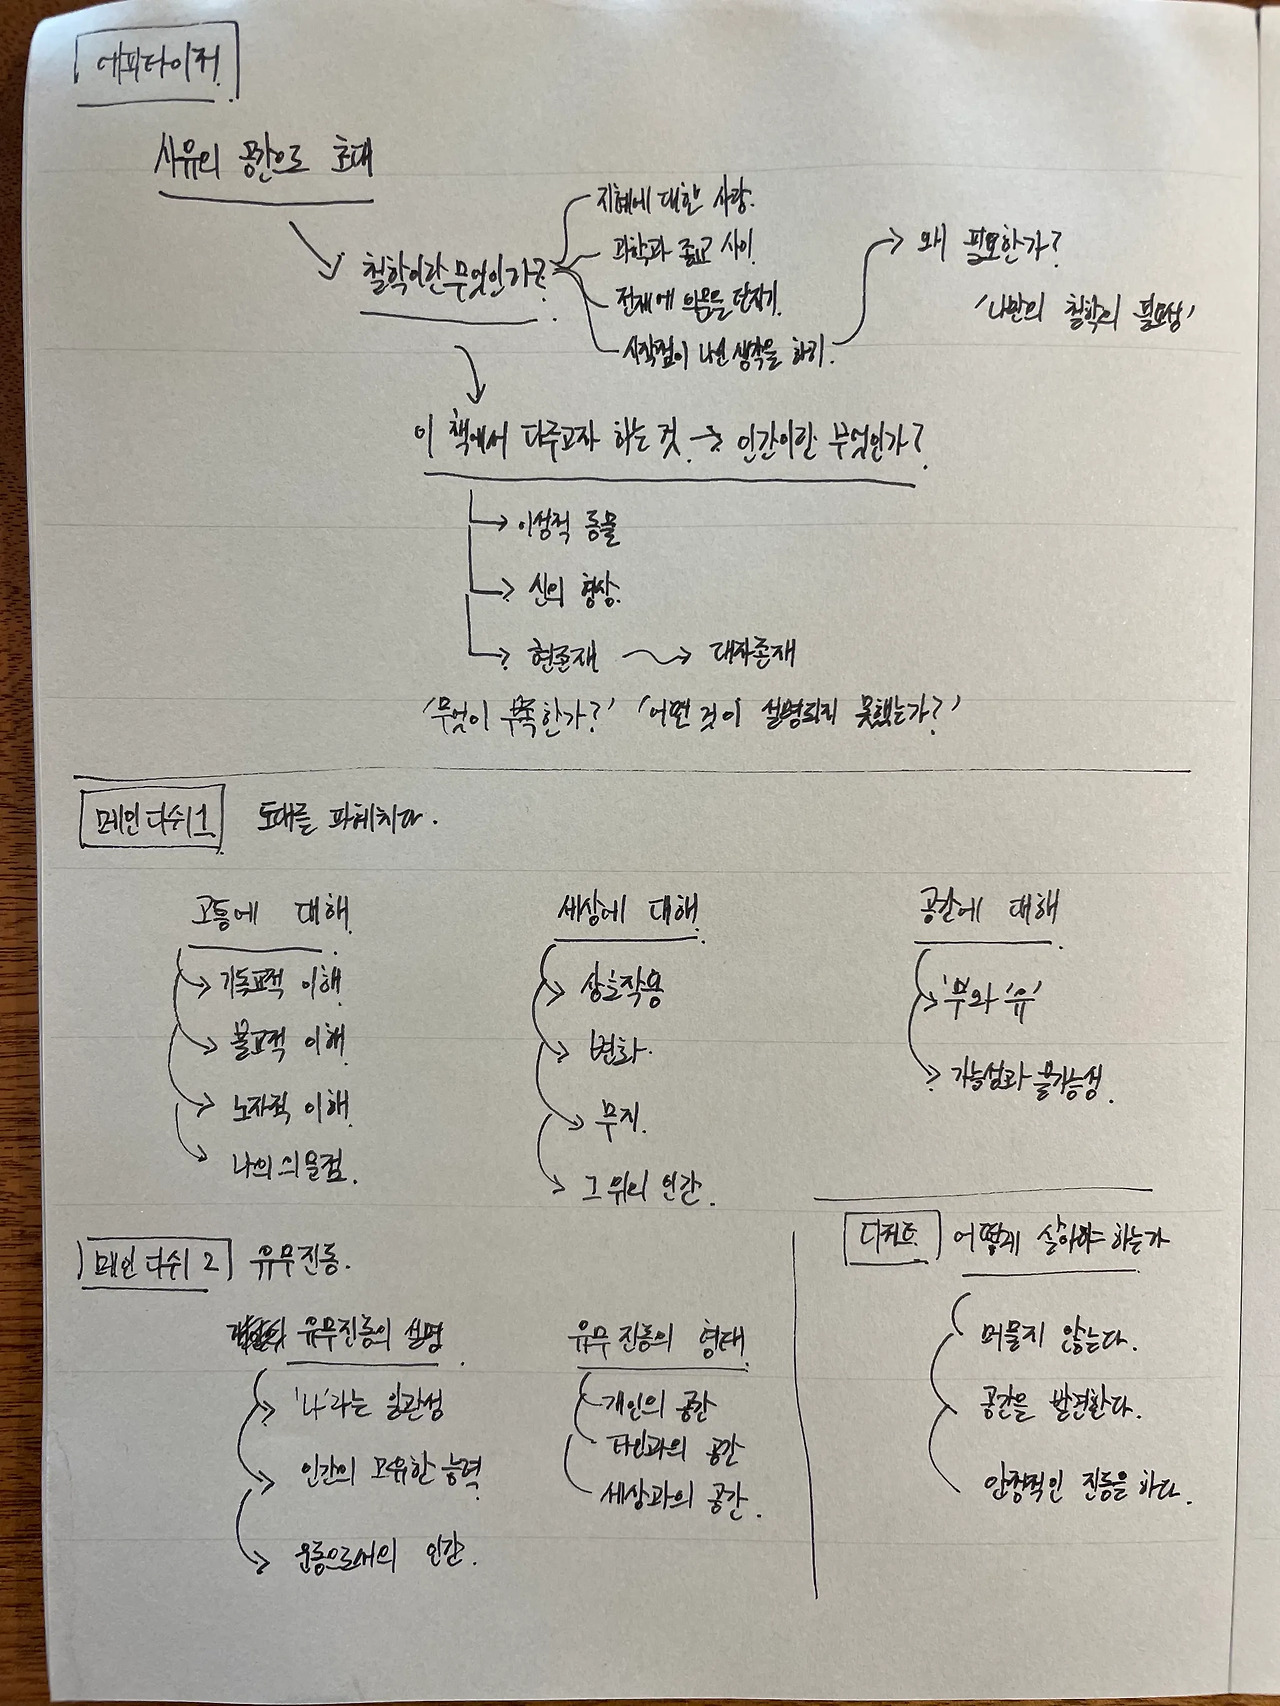 에피타이저.
사유의 공간으로 초대
철학이란 무엇인가?
지혜에 대한 사랑.
과학과 종교 사이.
전제에 의문을 던지기.
시작점이 나인 생각을 하기.
왜 필요한가?
'나만의 철학의 필요성'
이 책에서 다루고자 하는 것 → 인간이란 무엇인가?
이성적 동물
신의 형상.
현존재 → 대자존재
'무엇이 부족한가?' '어떤 것이 설명되지 못했는가?'
메인디쉬 1. 토대를 파헤치다.
고통에 대해.
기독교적 이해.
불교적 이해.
노자적 이해.
나의 의문점.
세상에 대해.
상호작용
변화.
무지.
그 위의 인간.
공간에 대해.
'무'와 '유'
가능성과 불가능성.
메인디쉬 2 유무진동.
유무진동의 설명.
'나'라는 일관성
인간의 고유한 능력.
운동으로서의 인간.
유무진동의 형태
개인의 공간
타인과의 공간
세상과의 공간.
디저트. 어떻게 살아야 하는가
머물지 않는다.
공간을 발견한다.
안정적인 진동을 하다.